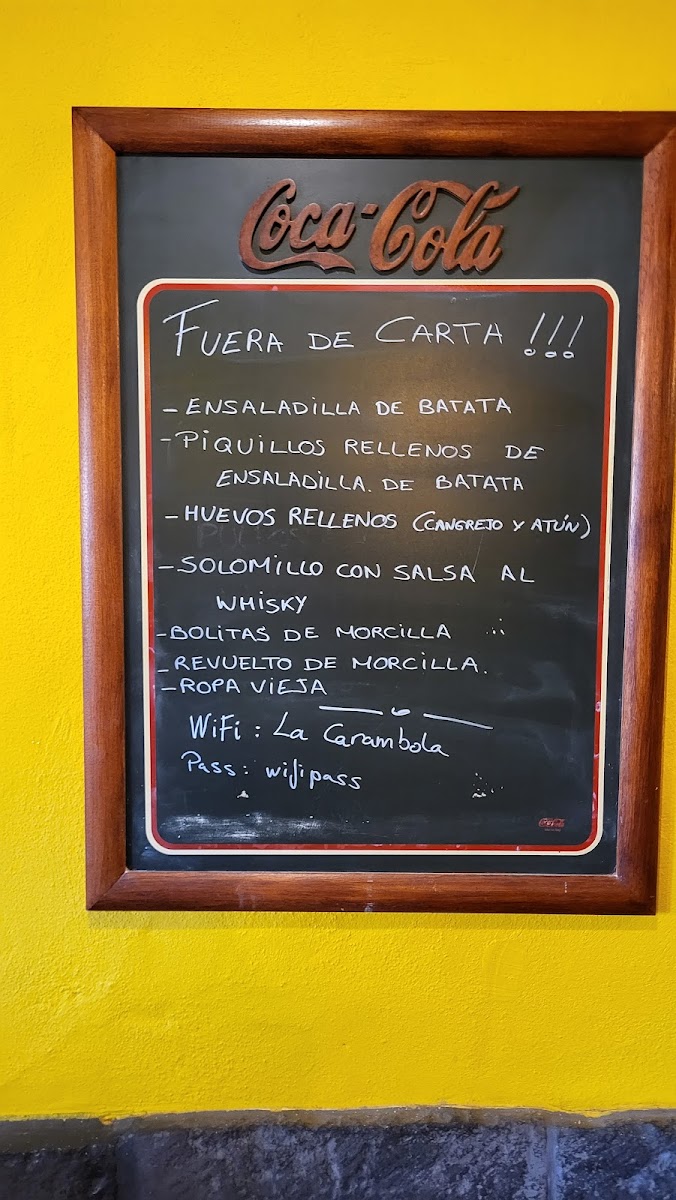 Coca-Cola
FUERA DE CARTA !!!
- ENSALADILLA DE BATATA
- PIQUILLOS RELLENOS DE
ENSALADILLA. DE BATATA
- HUEVOS RELLENOS (CANGREJO Y ATÚN)
- SOLOMILLO CON SALSA AL
WHISKY
- BOLITAS DE MORCILLA
- REVUELTO DE MORCILLA.
- ROPA VIEJA
WiFi : La Carambola
Pass : wifipass
Coca-Cola